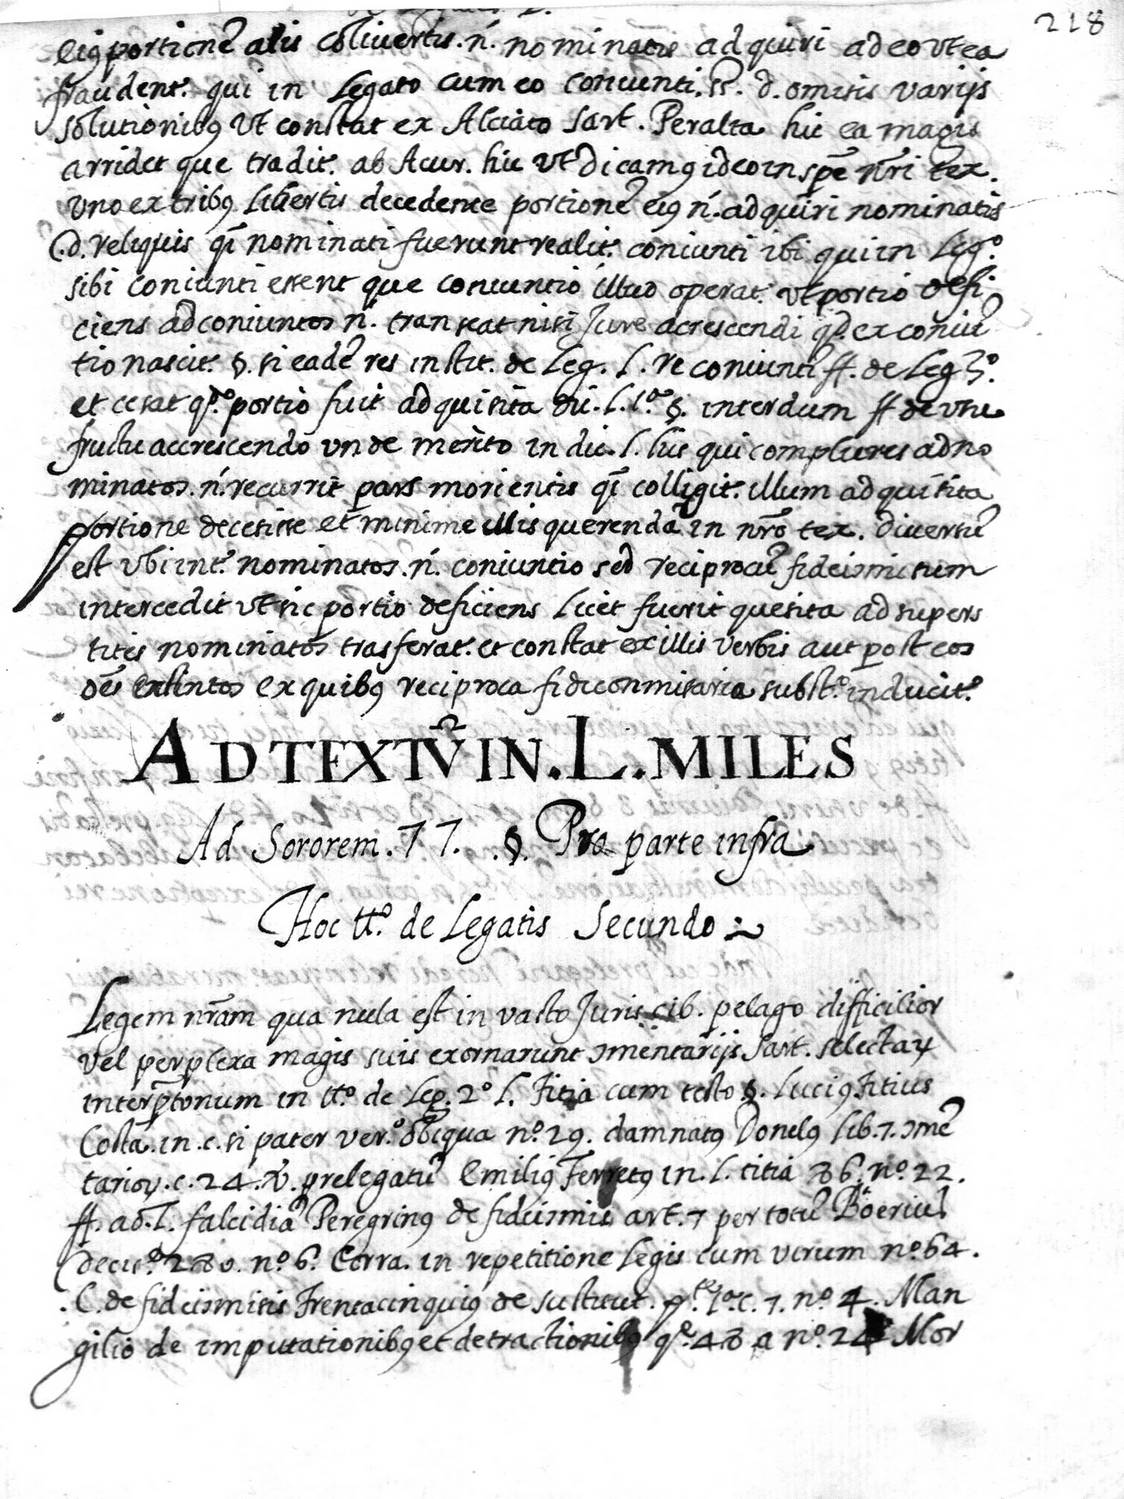 218
eiꝰ portionẽ alis coliuertis. ń. nominatis adquiri adeo vt ea
fraudent. qui in Legato cum eo coniuncti. d. omisis varijs
solutionibꝰ vt constat ex Alciato Sart. Peralta hic ea magis
arridet que tradit. ab Acur. hic vt dicamꝰ ideo in spẽ nr̃i tex.
vno ex tribꝰ libertis decedente portionẽ eiꝰ ń. adquiri nominatis
C. d. reliquis q̃ nominati fuerunt realit. coniunti ibi qui in Leg.º
sibi coniunti essent que coniuntio illud operat. vt portio defi
ciens ad coniuntos ń. transeat nisi Jure acrescendi qd. ex coniũ
tio nascit. §. si eadẽ res instit. de Leg. L. re coniunti ff. de Leg 3.º
et cesat qº. portio fuit adquisita dic. l. 1.ª §. interdum ff de vsu
fructu accrescendo vnde merito in dic. l. huis qui complures adno
minatos. ń. recurrit pars morientis q̃ colligit. illum adquisita
portione decesisse et minime illis querendã in nr̃o tex. diuersũ
est vbi int. nominatos. ń. coniuntio sed reciprocũ fideicmisum
intercedit vt sic portio deficiens licet fuerit quesita ad supers
tites nominatos trasferat. et constat ex illis verbis aut post eos
oẽs extintos ex quibꝰ reciproca fideconmisaria subst.º inducit.
AD TEXTṼ IN. L. MILES
Ad Sororem. 77. §. Pro parte infra
Hoc ttº. de Legatis Secundo
Legem nr̃am qua nula est in vasto Juris cib. pelago difficilior
vel perplexa magis suis exornarunt ɔmentarijs Sart. selectaꝝ
interp̃tonum in ttº. de Leg. 2º l. Titia cum testo §. Luciꝰ Titius
Costa. in. c. si pater ver.º obliqua nº. 29. damnatꝰ Donelꝰ lib. 7. ɔmẽ
tarioꝝ. c. 24. prelegatũ Emiliꝰ Ferretꝰ in. l. titia 86. nº. 22.
ff. ad. l. falcidiã Peregrinꝰ de fideicmis art. 7 per totũ Boeriuˢ
decis.º 280. nº. 6. Corra. in repetitione Legis cum virum nº. 64.
C. de fideicmisis Trentacinquiꝰ de sustitut. c. 7. nº. 4. Man
gilio de imputationibꝰ et detractionibꝰ q.ᵉ 48 a nº. 24 Mor